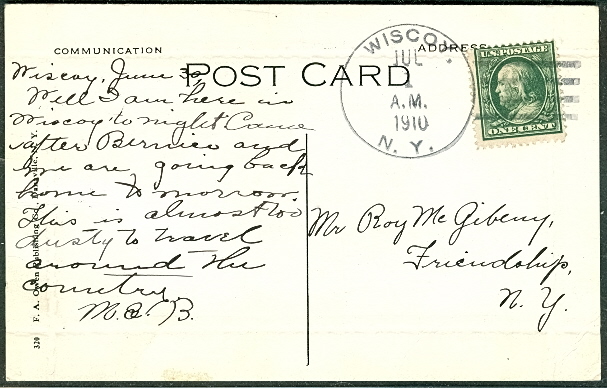 COMMUNICATION
ADDRESS
POST CARD
WISCOY.
JUL
1
A.M.
1910
N. Y.
U.S. POSTAGE
ONE CENT
Wiscoy, June 30
Well I am here in
Wiscoy to night Came
after Bernice and
we are going back
home to morrow.
This is almost too
dusty to travel
around the
country.
M. E. B.
Mr Roy McGibeny,
Friendship,
N. Y.
320 F. A. Owen Publishing Co., Dansville, N. Y.